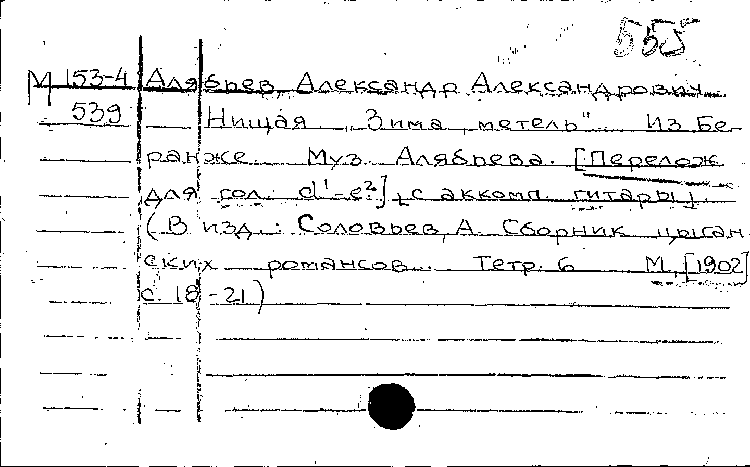 555
М 153-4 Алябьев, Александр Александрович
539 Нищая „Зима, метель". Из Бе
ранже. Муз. Алябьева. [Перелож
для гол. d¹-e²] с аккомп. гитары.
(В изд.: Соловьев, А. Сборник цыган
ских романсов. Тетр. 6 М, [1902]
с. 18-21)